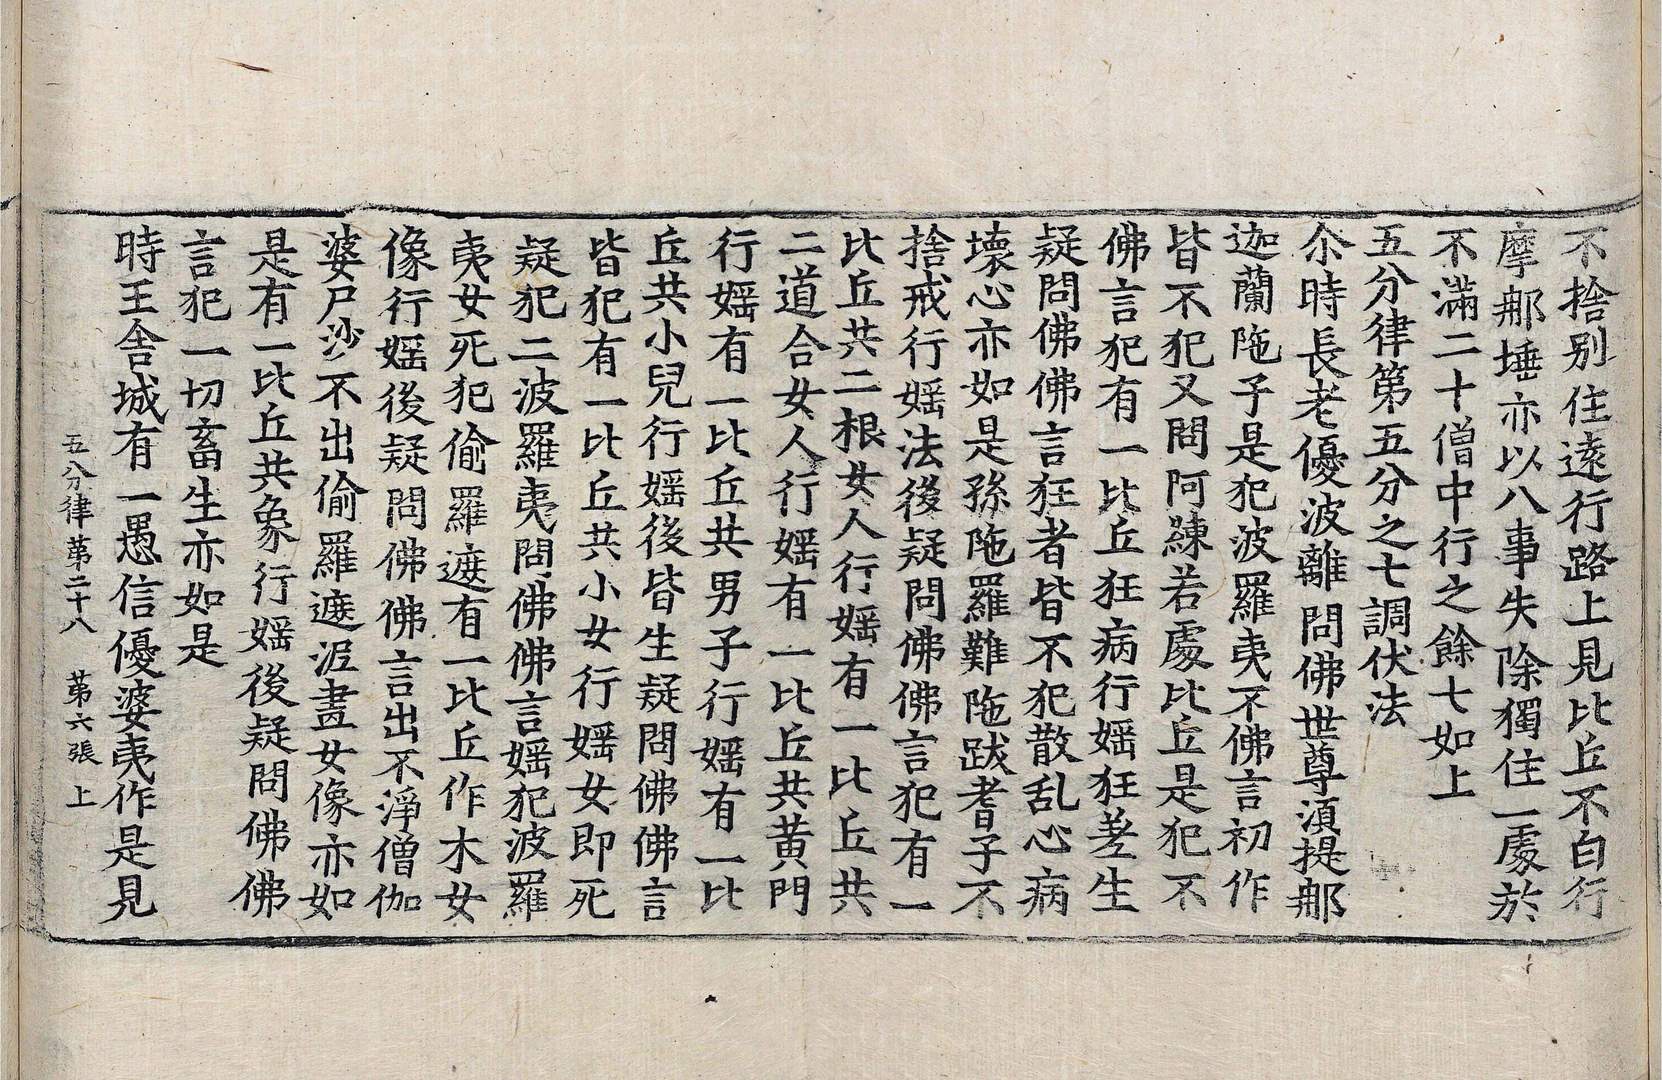 不捨別住遠行路上見比丘不白行
摩那埵亦以八事失除獨住一處於
不滿二十僧中行之餘七如上
五分律第五分之七調伏法
尒時長老優波離問佛世尊湏提那
迦蘭陁子是犯波羅夷不佛言初作
皆不犯又問阿練若處比丘是犯不
佛言犯有一比丘狂病行婬狂差生
疑問佛佛言狂者皆不犯散乱心病
壞心亦如是孫陁羅難陁跋耆子不
捨戒行婬法後疑問佛佛言犯有一
比丘共二根女人行婬有一比丘共
二道合女人行婬有一比丘共黃門
行婬有一比丘共男子行婬有一比
丘共小兒行婬後皆生疑問佛佛言
皆犯有一比丘共小女行婬女即死
疑犯二波羅夷問佛佛言婬犯波羅
夷女死犯偷羅遮有一比丘作木女
像行婬後疑問佛佛言出不淨僧伽
婆尸沙不出偷羅遮泥畫女像亦如
是有一比丘共象行婬後疑問佛佛
言犯一切畜生亦如是
時王舍城有一愚信優婆夷作是見
五分律第二十八　第六張　上